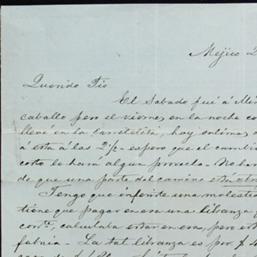 Mejico 2
Querido Tio
El Sabado fué á Mé
caballo pero el viernes, en la noche co
llevé en la carretelita, hoy salimos, d
á esta á las 2 1/2 - espero que el cambi
corto le hará algun provecho. No ha
de que una parte del camino está
Tengo que infinito una molestia
tiene que pagar en esa una libranza
cor.te, calculaba estar en esa, pero
febria - La tal libranza es por $ 4